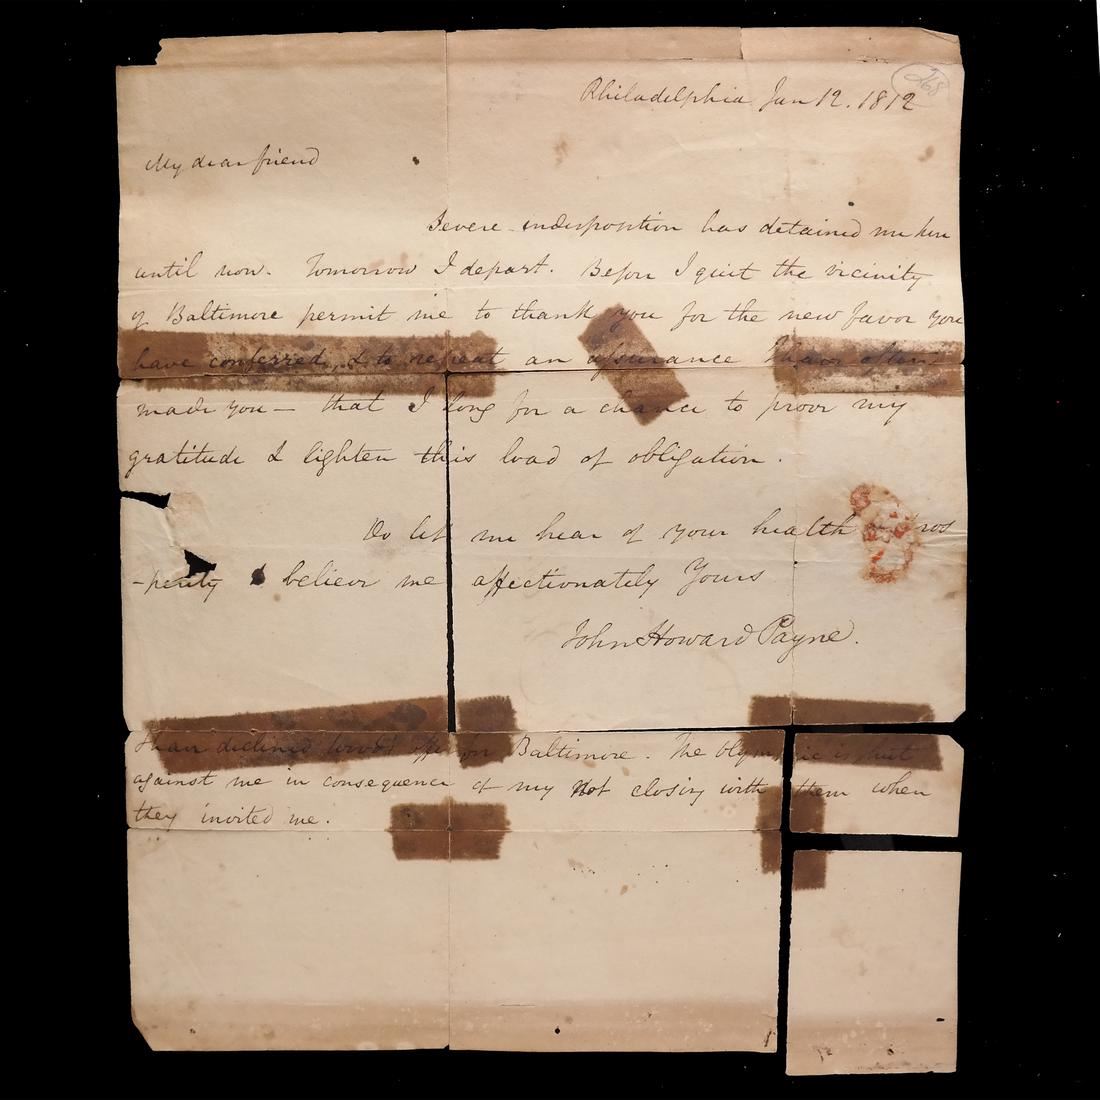 268
Philadelphia Jan 12. 1812
My dear friend
Severe indisposition has detained me here
until now. Tomorrow I depart. Before I quit the vicinity
of Baltimore permit me to thank you for the new favor you
have conferred, & to repeat an assurance I have often
made you — that I long for a chance to prove my
gratitude & lighten this load of obligation.
Do let me hear of your health ros
-perity & believe me affectionately Yours
John Howard Payne.
I have declined two offers for Baltimore. The Olympic is shut
against me in consequence of my not closing with them when
they invited me.